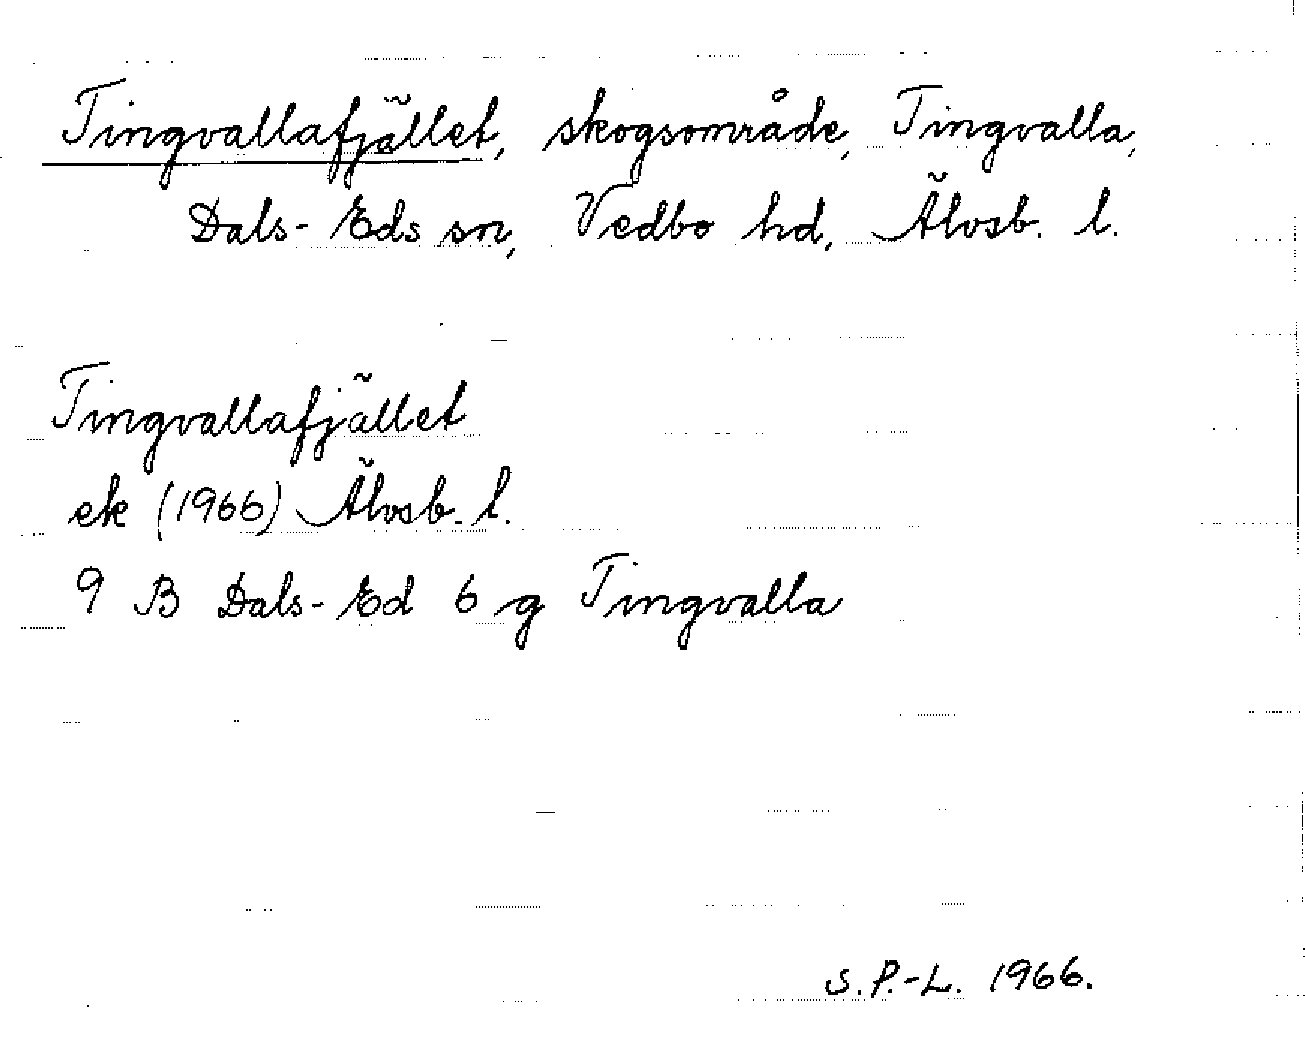 Tingvallafjället, skogsområde, Tingvalla,
Dals-Eds sn, Vedbo hd, Älvsb. l.
Tingvallafjället
ek (1966) Älvsb. l.
9 B Dals-Ed 6 g Tingvalla
S.P.-L. 1966.